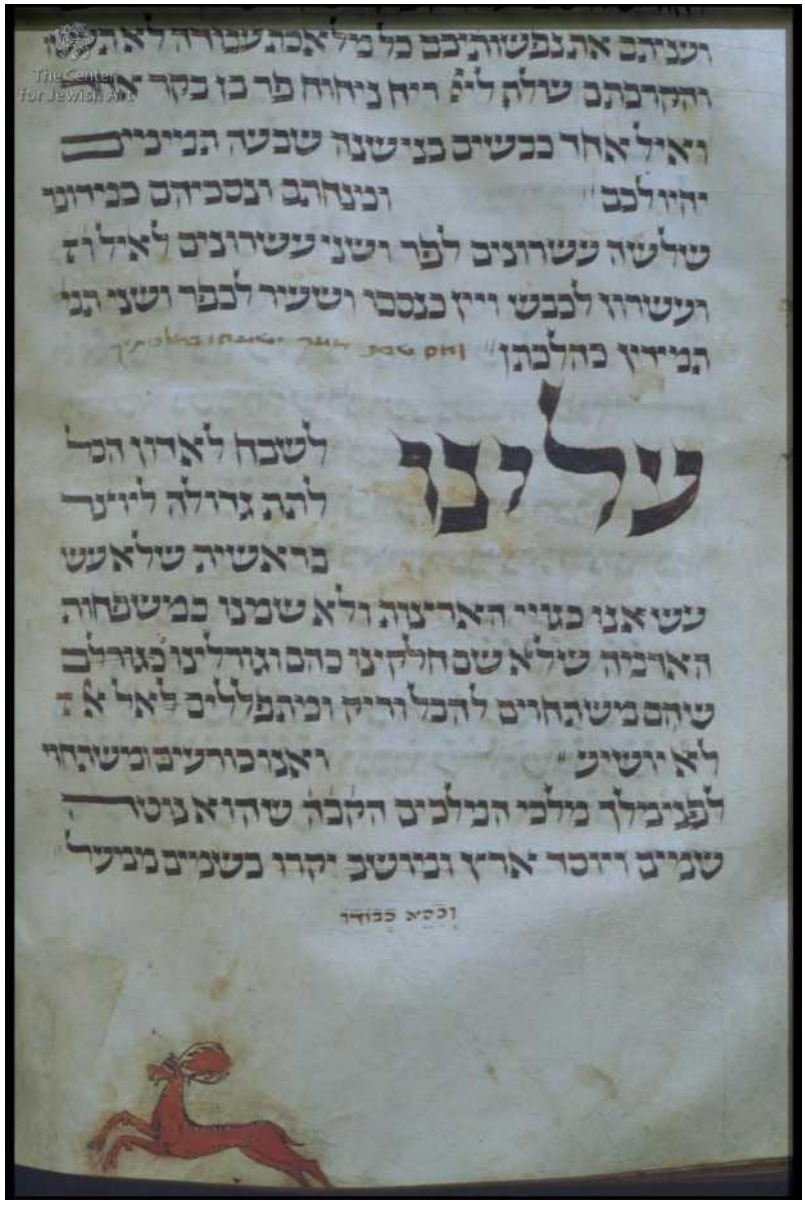 The Center
for Jewish Art
ועניתם את נפשותיכם כל מלאכת עבודה לא תעשו
והקרבתם עולה ליי׳ ריח ניחוח פר בן בקר אחד
ואיל אחד כבשים בני שנה שבעה תמימים
יהיו לכם ומנחתם ונסכיהם כמדובר
שלשה עשרונים לפר ושני עשרונים לאיל
ועשרון לכבש ויין כנסכו ושעיר לכפר ושני תמי
תמידין כהלכתן ואם שבת אומר ישמחו במלכותיך
עלינו
לשבח לאדון הכל
לתת גדולה ליוצר
בראשית שלא עש
עשאנו כגויי הארצות ולא שמנו כמשפחות
האדמה שלא שם חלקינו כהם וגורלינו כגורלם
שהם משתחוים להבל וריק ומתפללים לאל
לא יושיע ואנו כורעים ומשתחוי
לפני מלך מלכי המלכים הקבה שהוא נוטה
שמים ויוסד ארץ ומושב יקרו בשמים ממעל
וכסא כבודו